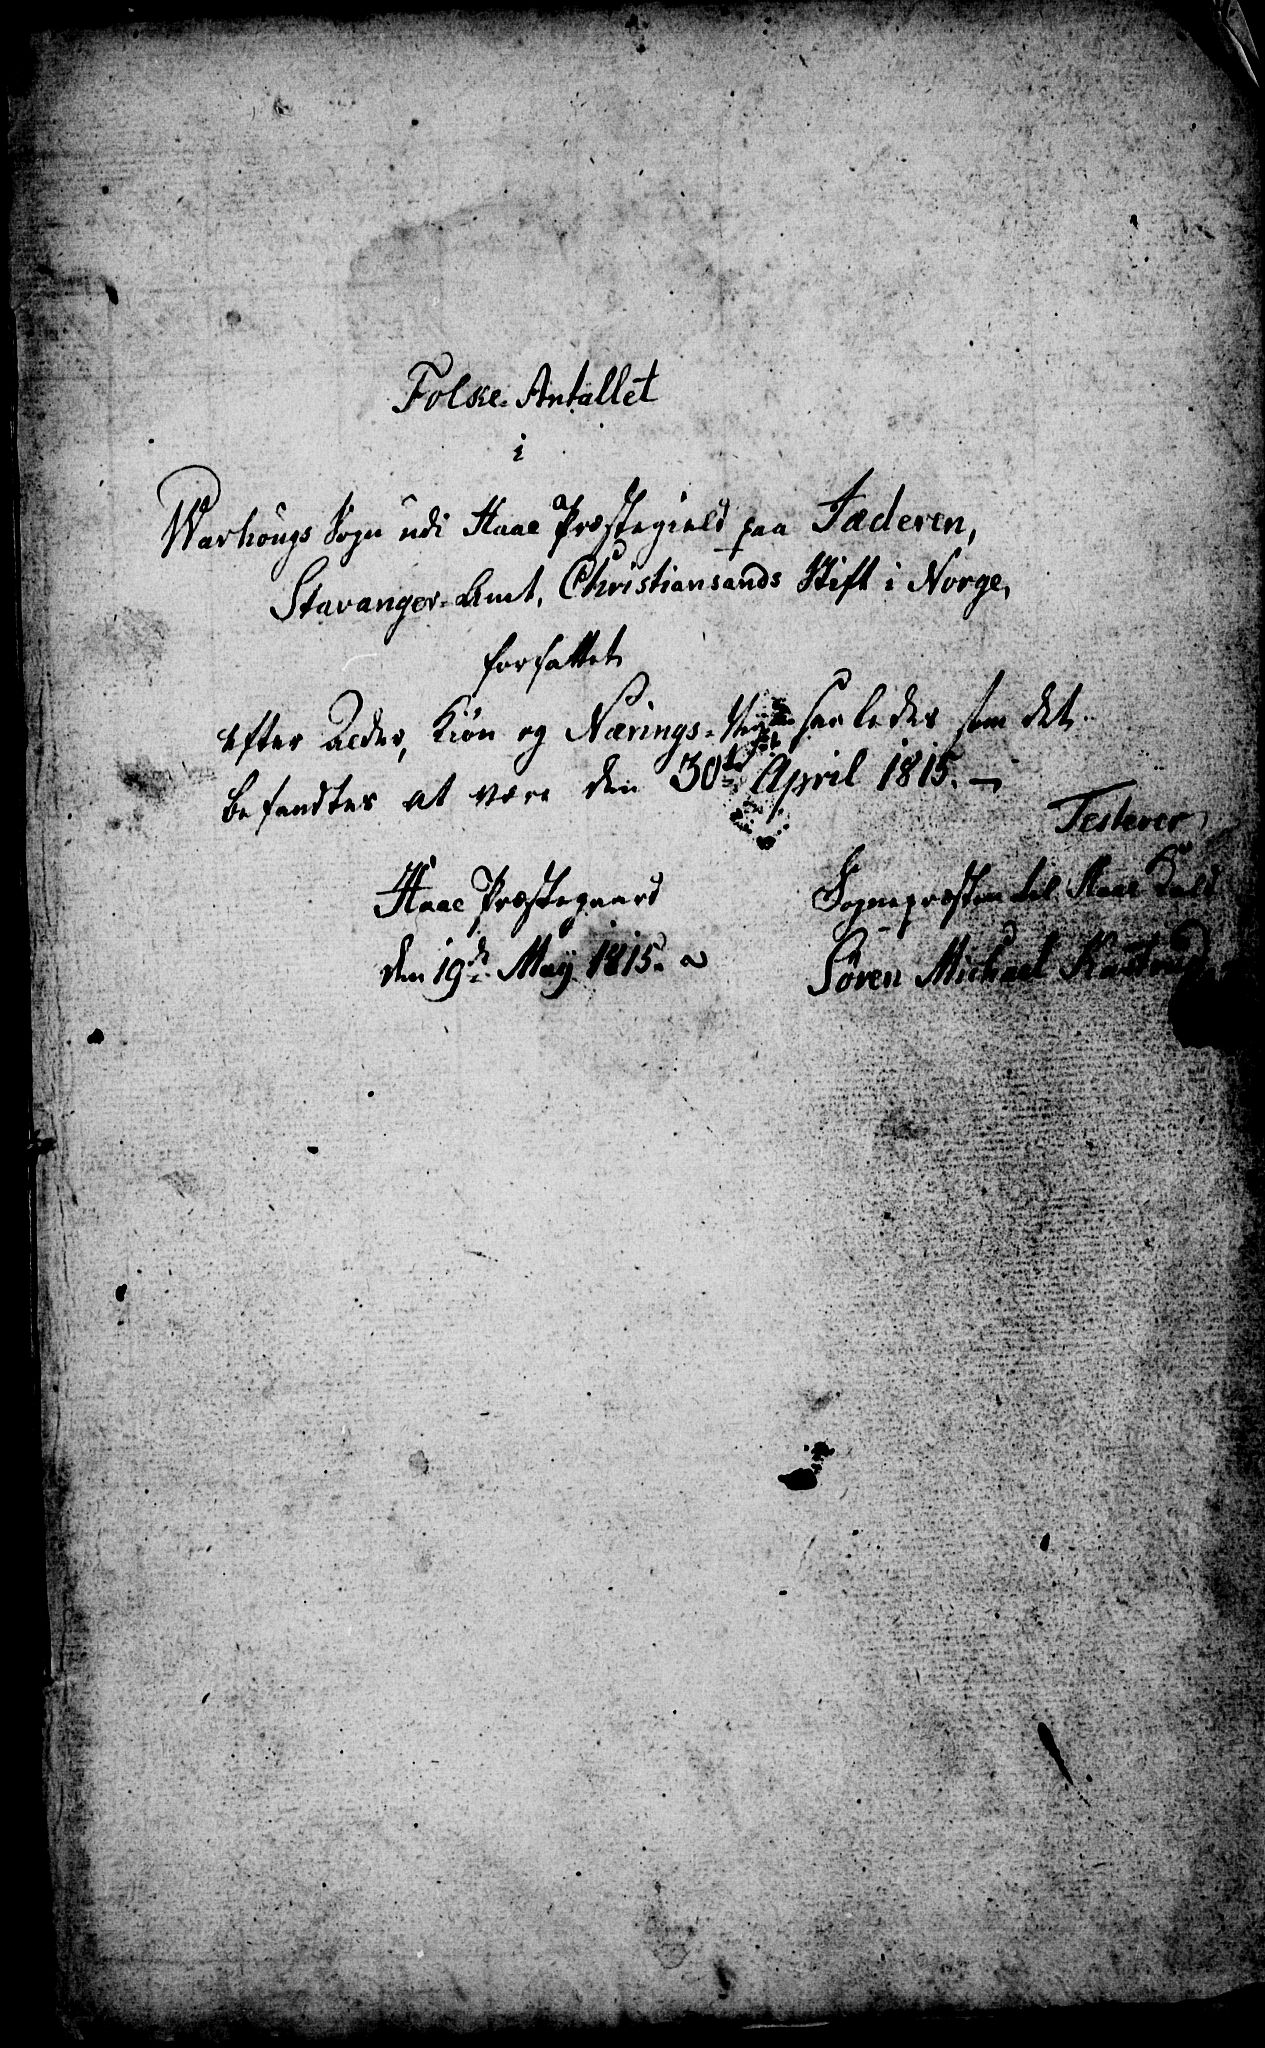 Folke-Antallet
i
Warhougs Sogn udi Haae Præstegield paa Jæderen,
Stavanger-Amt, Christiansands Stift i Norge,
forfattet
efter Alder, Kiøn og Nærings-Vey saaledes som det
befandtes at være den 30te April 1815.
Testerer
Haae Præstegaard
Sognepræsten til Haae Kald
den 19de May 1815.
Sören Michael